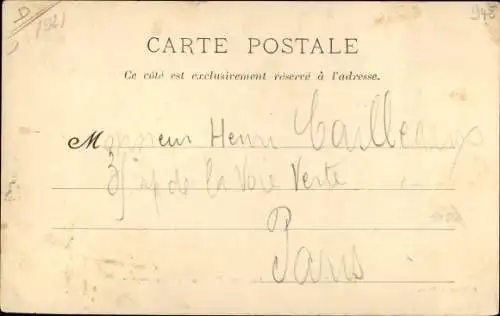 D
1941
943
CARTE POSTALE
Ce côté est exclusivement réservé à l'adresse.
Monsieur Henri Cailleaux
35 de la Voie Verte
Paris